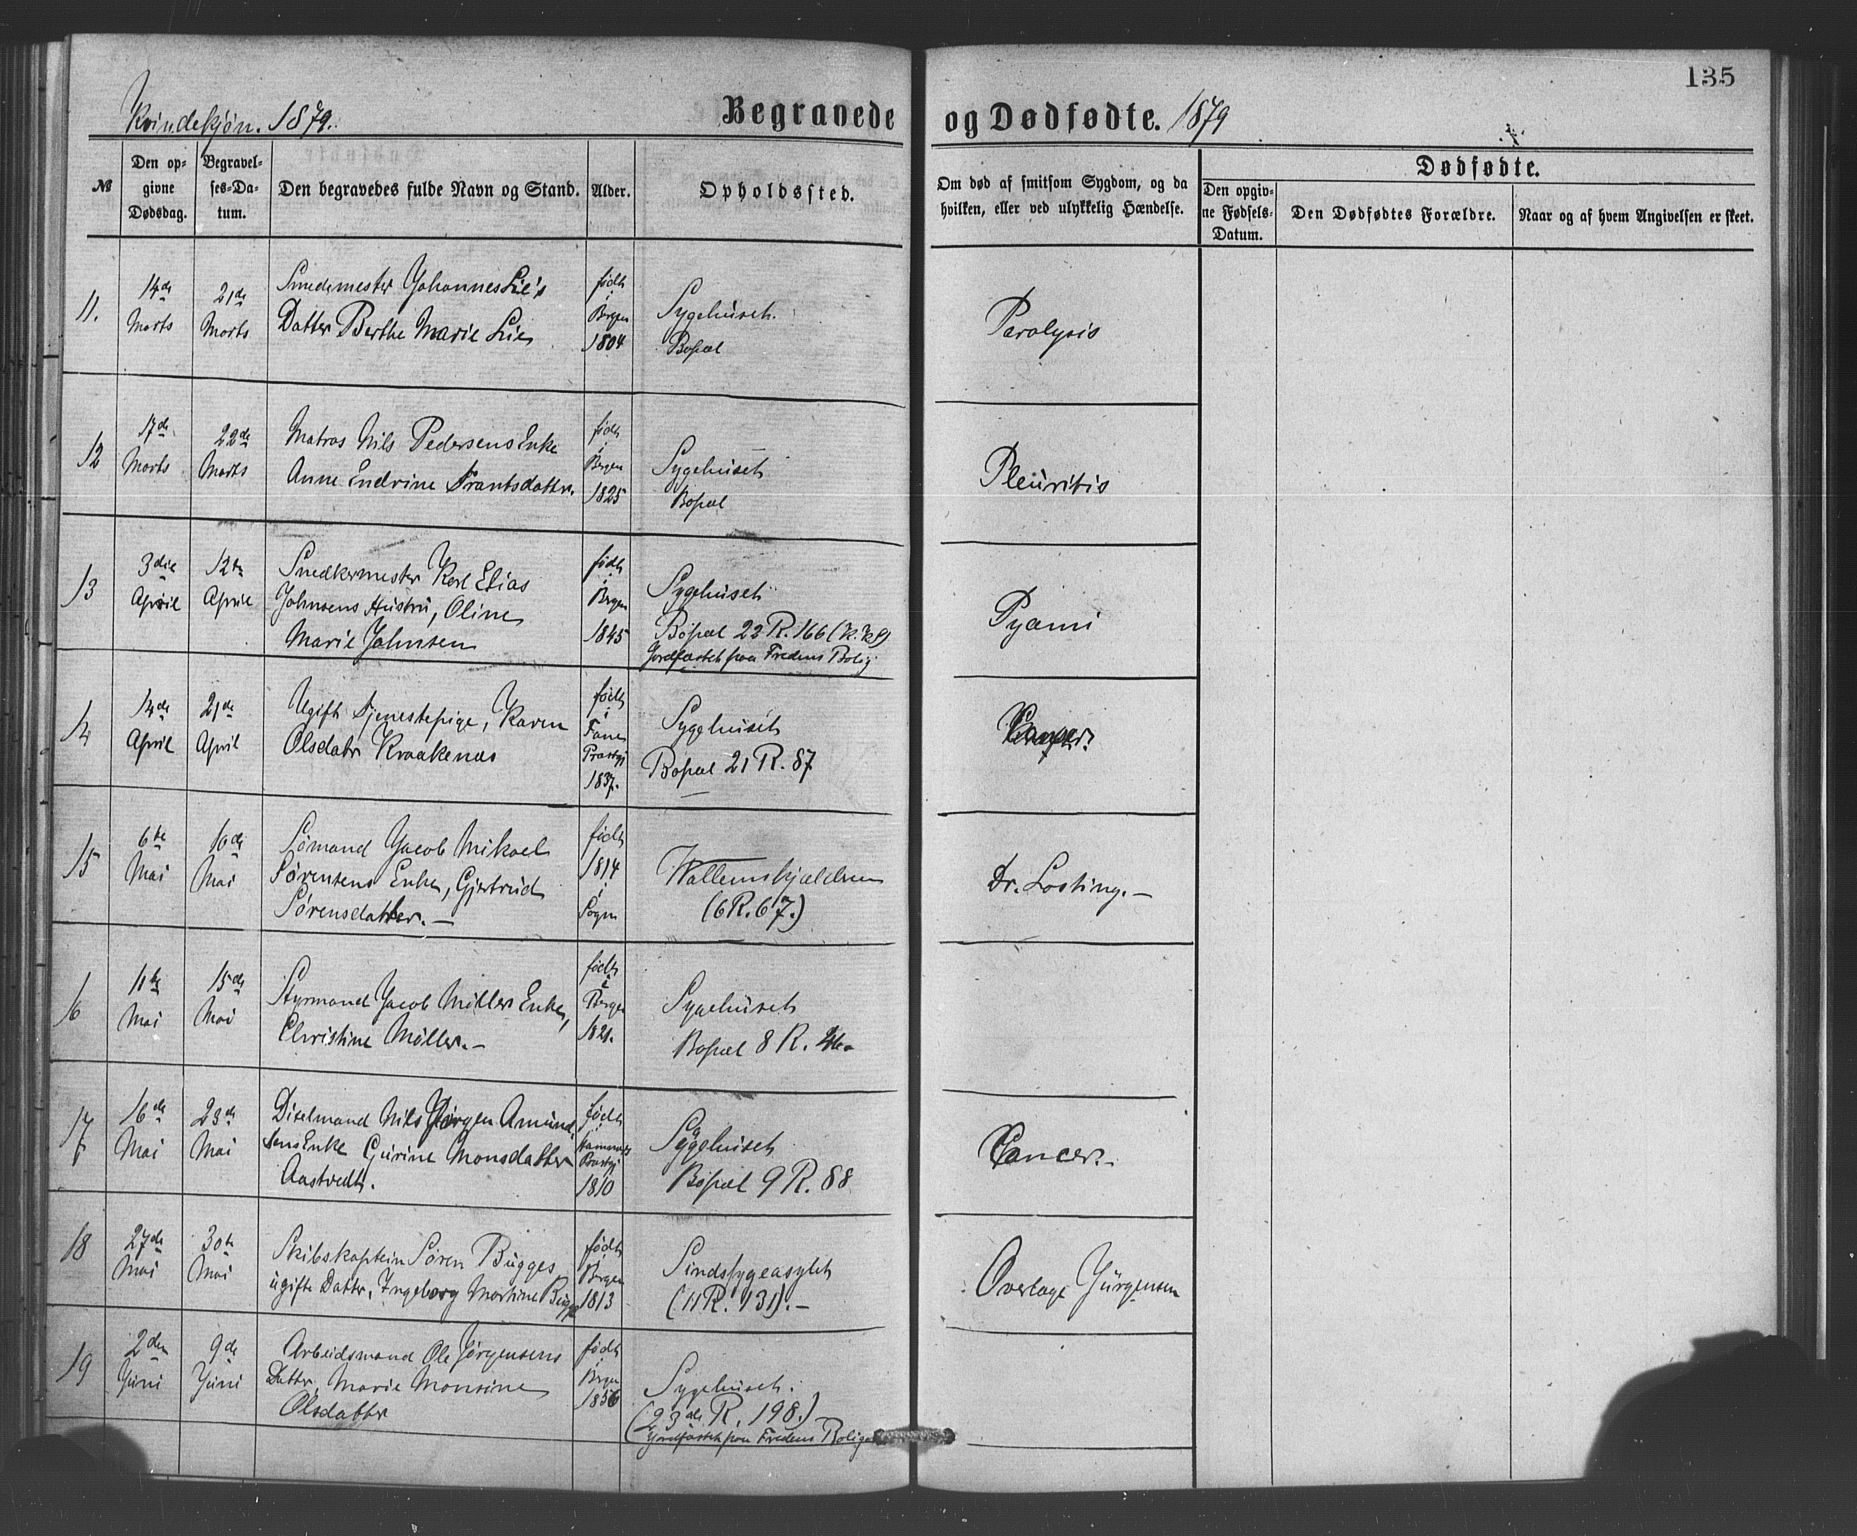 135
Kvindekjøn. 1879.
Begravede og Dødfødte. 1879
№
Den opgivne Dødsdag.
Begravelses-Datum.
Den begravedes fulde Navn og Stand.
Alder.
Opholdssted.
Om død af smitsom Sygdom, og da hvilken, eller ved ulykkelig Hændelse.
Dødfødte.
Den opgivne Fødsels-Datum.
Den Dødfødtes Forældre.
Naar og af hvem Angivelsen er skeet.
11.
14de Marts
21de Marts
Smedemester Johannes Lie's
Datter Berthe Marie Lie
født i Bergen 1804
Sygehuset.
Bopæl
Paralysis
12
17de Marts
22de Marts
Matros Nils Pedersens Enke
Anne Endrine Frantsdatter.
født i Bergen 1825
Sygehuset
Bopæl
Pleuritis
13
3die April
12te April
Snedkermester Karl Elias
Johnsens Hustru, Oline
Marie Johnsen
født i Bergen 1845
Sygehuset
Bopæl 23 R. 166 (K.K.)
Jordfæstet paa Fredens Bolig
Pyæmi
14
14de April
21de April
Ugift Tjenestepige, Karen
Olsdatr Kraakenæs
født i Fane Præstgj 1837.
Sygehuset
Bopæl 21 R. 87
15
6te Mai
10de Mai
Sømand Jacob Mikael
Sørensens Enke, Gjertrud
Sørensdatter. —
født 1814 i Sogn
Wallemskjælderen
(6 R. 67.)
Dr. Losting. —
16
11te Mai
15de Mai
Styrmand Jacob Møllers Enke,
Christine Møller. —
født i Bergen 1821.
Sygehuset
Bopæl 8 R.
17
16de Mai
23de Mai
Diselmand Nils Jørgen Amund
sens Enke Gurine Monsdatter
Aastvedt.
født i Hammers Præstgj 1810
Sygehuset
Bopæl 9 R. 88
Cancer. —
18
27de Mai
30te Mai
Skibskaptein Søren Bugges
ugifte Datter, Ingeborg Martine Bugge
født i Bergen 1813
Sindssygeasylet
(11 R. 131). —
Overlæge Jürgensen
19
2den Juni
9de Juni
Arbeidsmand Ole Jørgensens
Datter, Marie Monsine
Olsdatter
født i Bergen 1856
Sygehuset.
(23de R. 198.)
Jordfæstet paa Fredens Bolig